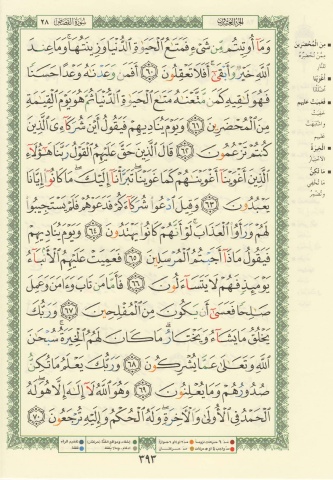 سورة القصص ٢٨
الجزء العشرون
وَمَآ أُوتِيتُم مِّن شَيْءٍ فَمَتَـٰعُ ٱلْحَيَوٰةِ ٱلدُّنْيَا وَزِينَتُهَا ۚ وَمَا عِندَ
ٱللَّهِ خَيْرٌ وَأَبْقَىٰٓ ۚ أَفَلَا تَعْقِلُونَ ٦٠ أَفَمَن وَعَدْنَـٰهُ وَعْدًا حَسَنًا
فَهُوَ لَـٰقِيهِ كَمَن مَّتَّعْنَـٰهُ مَتَـٰعَ ٱلْحَيَوٰةِ ٱلدُّنْيَا ثُمَّ هُوَ يَوْمَ ٱلْقِيَـٰمَةِ
مِنَ ٱلْمُحْضَرِينَ ٦١ وَيَوْمَ يُنَادِيهِمْ فَيَقُولُ أَيْنَ شُرَكَآءِيَ ٱلَّذِينَ
كُنتُمْ تَزْعُمُونَ ٦٢ قَالَ ٱلَّذِينَ حَقَّ عَلَيْهِمُ ٱلْقَوْلُ رَبَّنَا هَـٰٓؤُلَآءِ
ٱلَّذِينَ أَغْوَيْنَآ أَغْوَيْنَـٰهُمْ كَمَا غَوَيْنَا ۖ تَبَرَّأْنَآ إِلَيْكَ ۖ مَا كَانُوٓا۟ إِيَّانَا
يَعْبُدُونَ ٦٣ وَقِيلَ ٱدْعُوا۟ شُرَكَآءَكُمْ فَدَعَوْهُمْ فَلَمْ يَسْتَجِيبُوا۟
لَهُمْ وَرَأَوُا۟ ٱلْعَذَابَ ۚ لَوْ أَنَّهُمْ كَانُوا۟ يَهْتَدُونَ ٦٤ وَيَوْمَ يُنَادِيهِمْ
فَيَقُولُ مَاذَآ أَجَبْتُمُ ٱلْمُرْسَلِينَ ٦٥ فَعَمِيَتْ عَلَيْهِمُ ٱلْأَنۢبَآءُ
يَوْمَئِذٍ فَهُمْ لَا يَتَسَآءَلُونَ ٦٦ فَأَمَّا مَن تَابَ وَءَامَنَ وَعَمِلَ
صَـٰلِحًا فَعَسَىٰٓ أَن يَكُونَ مِنَ ٱلْمُفْلِحِينَ ٦٧ وَرَبُّكَ
يَخْلُقُ مَا يَشَآءُ وَيَخْتَارُ ۗ مَا كَانَ لَهُمُ ٱلْخِيَرَةُ ۚ سُبْحَـٰنَ
ٱللَّهِ وَتَعَـٰلَىٰ عَمَّا يُشْرِكُونَ ٦٨ وَرَبُّكَ يَعْلَمُ مَا تُكِنُّ
صُدُورُهُمْ وَمَا يُعْلِنُونَ ٦٩ وَهُوَ ٱللَّهُ لَآ إِلَـٰهَ إِلَّا هُوَ ۖ لَهُ
ٱلْحَمْدُ فِى ٱلْأُولَىٰ وَٱلْـَٔاخِرَةِ ۖ وَلَهُ ٱلْحُكْمُ وَإِلَيْهِ تُرْجَعُونَ ٧٠
٣٩٣
من المحضرين
أغوينا
فعميت عليهم
الخيرة
ما تكن